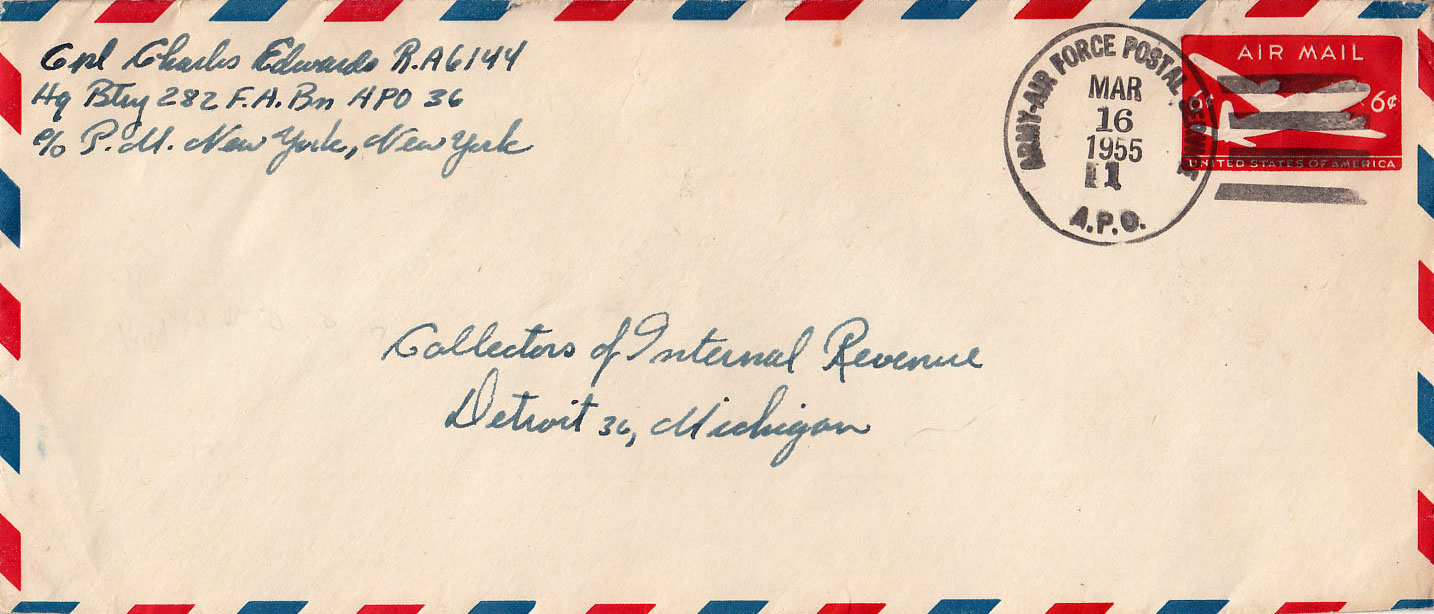 Cpl Charles Edwards R.A6144
Hq Btry 282 F.A. Bn APO 36
c/o P.M. New York, New York
ARMY-AIR FORCE POSTAL SERVICE
MAR
16
1955
1
A.P.O.
AIR MAIL
6¢ 6¢
UNITED STATES OF AMERICA
Collectors of Internal Revenue
Detroit 36, Michigan